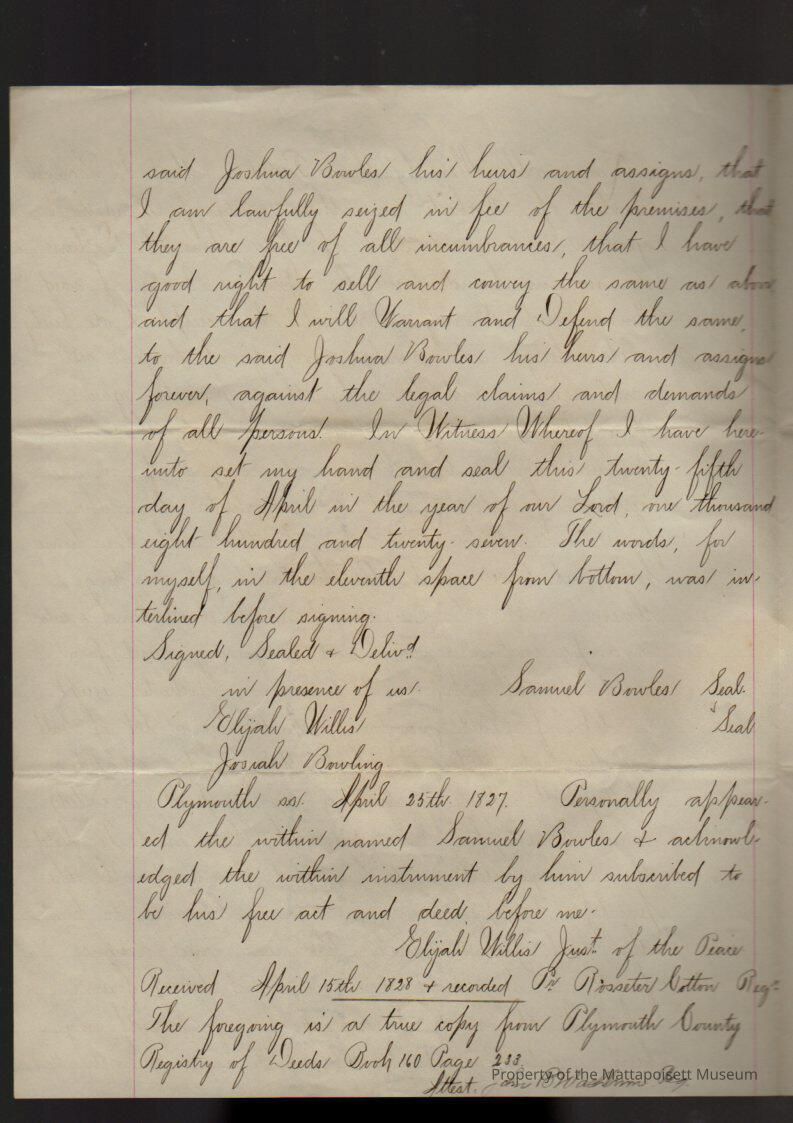 said Joshua Bowles his heirs and assigns, that
I am lawfully seized in fee of the premises, that
they are free of all incumbrances, that I have
good right to sell and convey the same as above
and that I will Warrant and Defend the same,
to the said Joshua Bowles his heirs and assigns
forever, against the legal claims and demands
of all persons. In Witness Whereof I have here-
unto set my hand and seal this twenty-fifth
day of April in the year of our Lord, one thousand
eight hundred and twenty-seven. The words, for
myself, in the eleventh space from bottom, was in-
terlined before signing.
Signed, Sealed & Delivd
in presence of us. Samuel Bowles Seal.
Elijah Willis Seal
Josiah Bowling
Plymouth ss. April 25th 1827. Personally appear-
ed the within named Samuel Bowles & acknowl-
edged the within instrument by him subscribed to
be his free act and deed, before me.
Elijah Willis Just. of the Peace
Received April 15th 1828 & recorded Pr Rosseter Cotton Regr
The foregoing is a true copy from Plymouth County
Registry of Deeds Book 160 Page 233
Attest.
Property of the Mattapoisett Museum